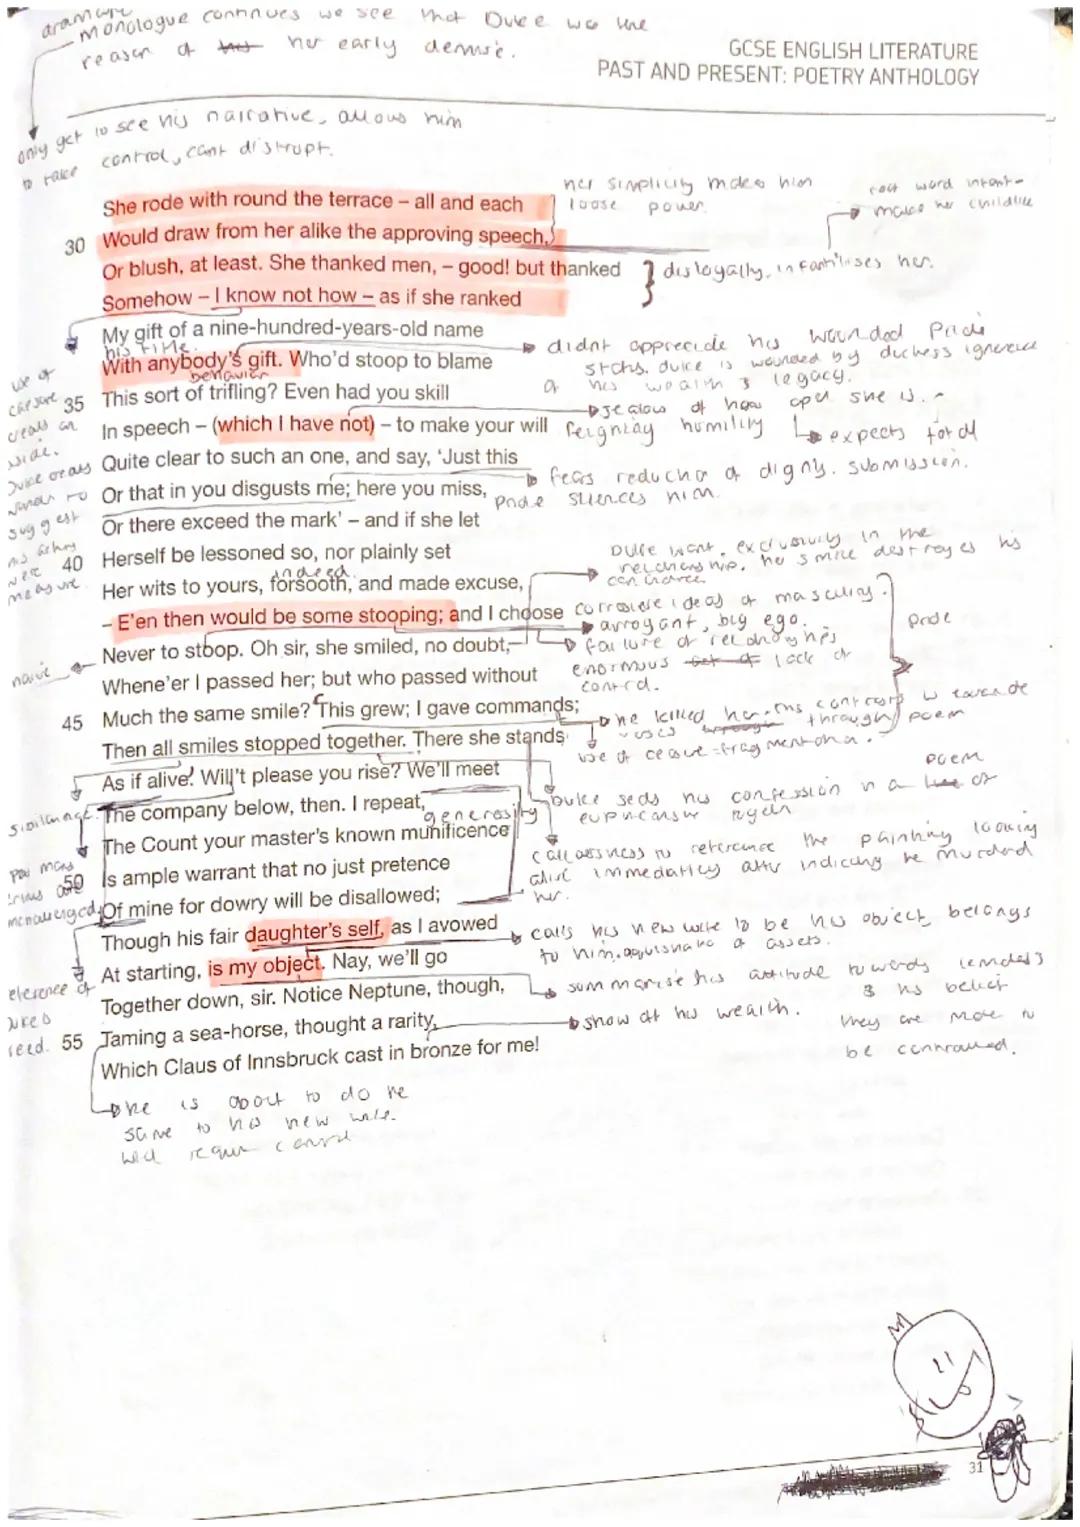 dramatic
monologue continues we see that Duke was the
reason of her early demise.
GCSE ENGLISH LITERATURE
PAST AND PRESENT: POETRY ANTHOLOGY
only get to see his narrative, allows him
to take control, cant disrupt.
her simplicity makes him
loose power.
root word infant -
makes her childlike
She rode with round the terrace – all and each
30 Would draw from her alike the approving speech,
Or blush, at least. She thanked men, – good! but thanked
disloyally, infantilises her.
Somehow – I know not how – as if she ranked
My gift of a nine-hundred-years-old name
his title.
With anybody's gift. Who'd stoop to blame
didnt appreciate his wounded Pride
status. duke is wounded by duchess ignorence
of his wealth & legacy.
behavior
35 This sort of trifling? Even had you skill
jealous of how open she is.
In speech – (which I have not) – to make your will
feigning humility
expects total
submission.
Quite clear to such an one, and say, 'Just this
fears reduction of dignity.
Or that in you disgusts me; here you miss,
pride silences him.
Or there exceed the mark' – and if she let
use of
caesure
creats an
aside.
Duke
suggest
40 Herself be lessoned so, nor plainly set
indeed
Her wits to yours, forsooth, and made excuse,
Duke want exclusivity in the
relationship, her smile destroyes his
– E'en then would be some stooping; and I choose
ideas of masculinity.
arrogant, big ego.
pride
Never to stoop. Oh sir, she smiled, no doubt,
failure of relationships
enormous lack of
control.
naive
Whene'er I passed her; but who passed without
45 Much the same smile? This grew; I gave commands;
he killed her
through poem
Then all smiles stopped together. There she stands
use of ceasure - fragmentation.
As if alive. Will't please you rise? We'll meet
sibilance.
The company below, then. I repeat,
generosity
Duke
confession in a
poem
The Count your master's known munificence
callousness to reference the painting looking
alive immediatley after indicating he murdered
her.
50 Is ample warrant that no just pretence
Of mine for dowry will be disallowed;
Though his fair daughter's self, as I avowed
calls his new wife to be his object, belongs
to him. of assets.
At starting, is my object. Nay, we'll go
summarise his attitude towards
& his belief
they are made to
be controlled.
Together down, sir. Notice Neptune, though,
reference of
Dukes
55 Taming a sea-horse, thought a rarity,
show of his wealth.
Which Claus of Innsbruck cast in bronze for me!
he is about to do the
same to his new wife.
will control
31